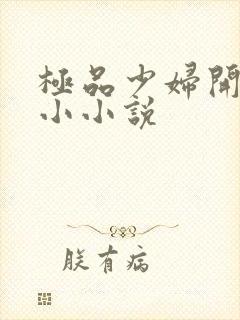 極品少婦開
小小說
朕有病